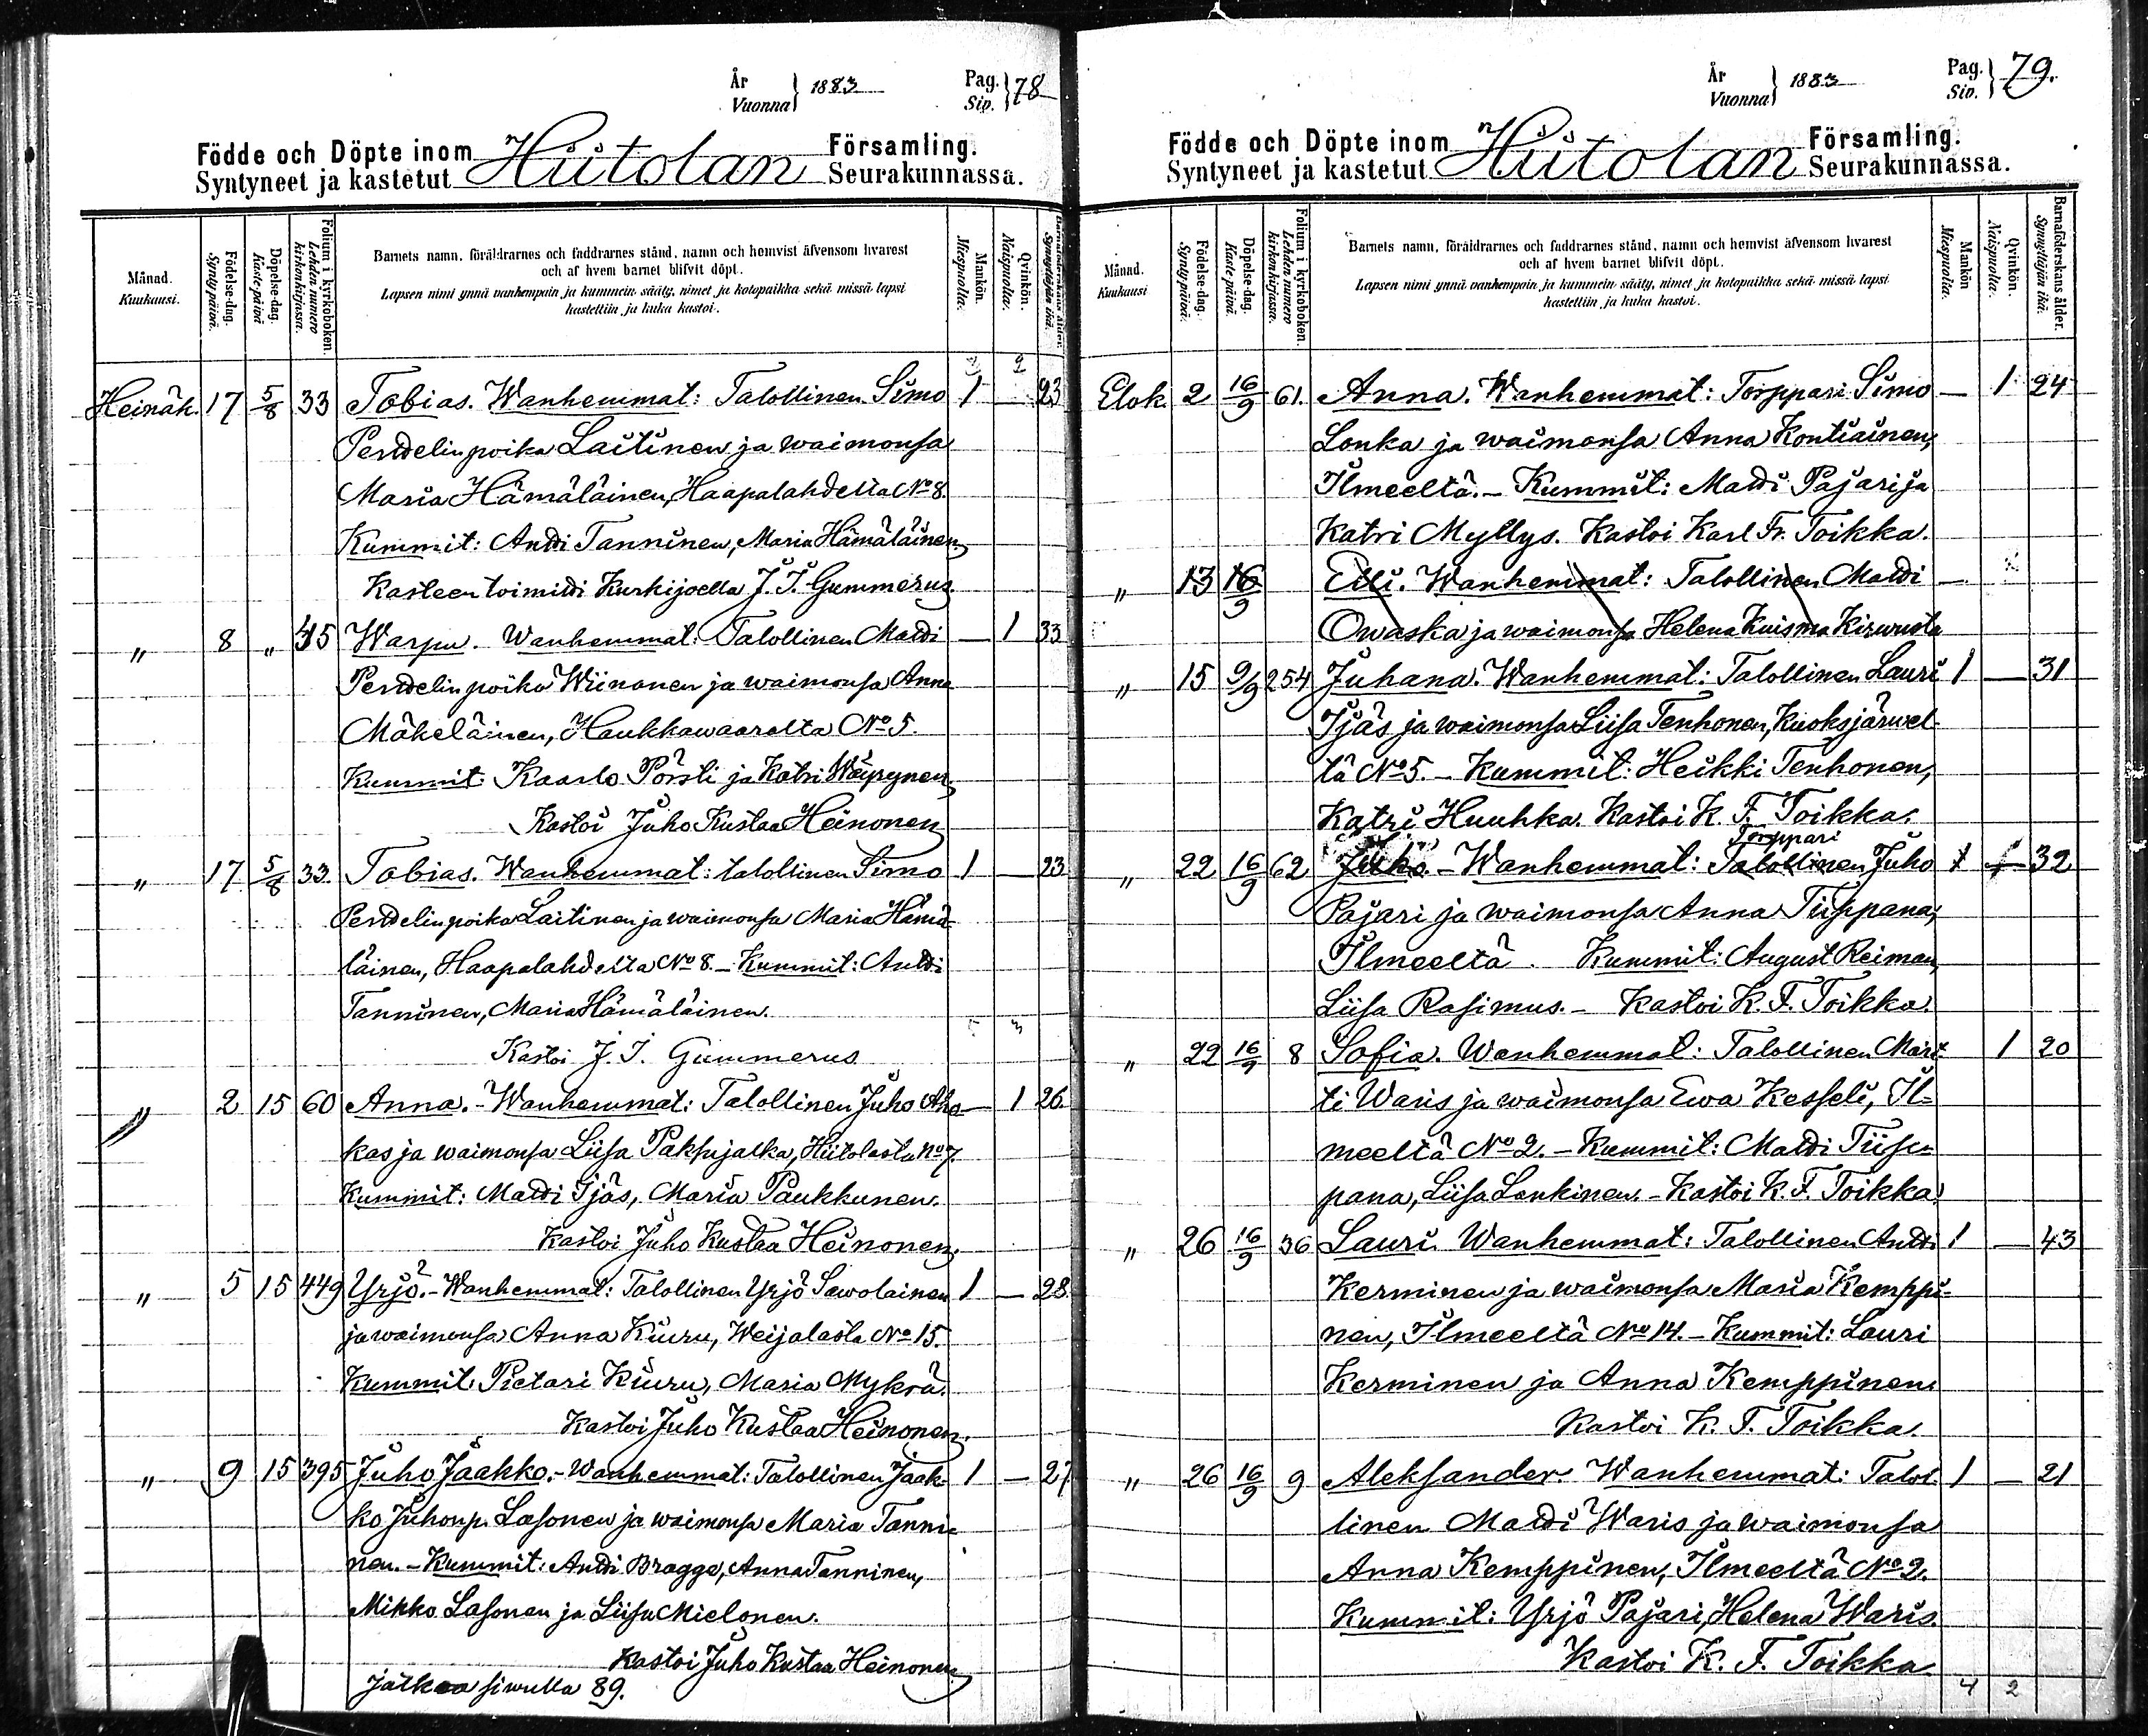 År
Vuonna } 1883
Pag.
Siv. } 78
Födde och Döpte inom Hiitolan Församling.
Syntyneet ja kastetut Seurakunnassa.
Månad.
Kuukausi.
Födelse-dag.
Syntypäivä.
Döpelse-dag.
Kaste-päivä
Folium i kyrkoboken.
Lehden numero kirkonkirjassa.
Barnets namn, föräldrarnes och faddrarnes stånd, namn och hemvist äfvensom hvarest
och af hvem barnet blifvit döpt.
Lapsen nimi ynnä vanhempain ja kummein sääty, nimet ja kotopaikka sekä missä lapsi
kastettiin ja kuka kastoi.
Mankön.
Miespuolia.
Qvinkön.
Naispuolia.
Barnaföderskans ålder.
Synnyttäjän ikä.
Heinäk. 17 5/8 33 Tobias. Wanhemmat: Talollinen Simo 1 — 23
Perttelinpoika Laitinen ja waimonsa
Maria Hämäläinen, Haapalahdelta No 8.
Kummit: Antti Tanninen, Maria Hämäläinen,
Kasteen toimitti Kurkijoella J. I. Gummerus.
" 8 " 45 Warpu. Wanhemmat: Talollinen Matti — 1 33
Perttelinpoika Wiinanen ja waimonsa Anna
Mäkeläinen, Haukkawaaralta No 5.
Kummit: Kaarlo Pörsti ja Katri Wäipynen,
Kastoi Juho Kustaa Heinonen
" 17 5/8 33. Tobias. Wanhemmat: talollinen Simo 1 — 23
Perttelinpoika Laitinen ja waimonsa Maria Hämä-
läinen, Haapalahdelta No 8. — Kummit: Antti
Tanninen, Maria Hämäläinen.
Kastoi J. I. Gummerus
" 2 15 60 Anna. - Wanhemmat: Talollinen Juho Aho- — 1 26
kas ja waimonsa Liisa Paksujalka, Hiitolasta No 7.
Kummit: Matti Ijäs, Maria Paukkunen.
Kastoi Juho Kustaa Heinonen.
" 5 15 449 Yrjö. - Wanhemmat: Talollinen Yrjö Sawolainen 1 — 28
ja waimonsa Anna Kiuru, Weijalasta No 15.
Kummit: Pietari Kiuru, Maria Mykrä.
Kastoi Juho Kustaa Heinonen.
" 9 15 395 Juho Jaakko. - Wanhemmat: Talollinen Jaak- 1 — 27
ko Juhonp. Lasonen ja waimonsa Maria Tanni-
nen. - Kummit: Antti Bragge, Anna Tanninen,
Mikko Lasonen ja Liisa Mielonen.
Kastoi Juho Kustaa Heinonen.
Jatkoa siwulla 89.
År
Vuonna } 1883
Pag.
Siv. } 79.
Födde och Döpte inom Hiitolan Församling.
Syntyneet ja kastetut Seurakunnassa.
Månad.
Kuukausi
Födelse-dag.
Syntypäivä.
Döpelse-dag.
Kaste-päivä.
Folium i kyrkoboken.
Lehden numero kirkonkirjassa.
Barnets namn, föräldrarnes och faddrarnes stånd, namn och hemvist äfvensom hvarest
och af hvem barnet blifvit döpt.
Lapsen nimi ynnä vanhempain ja kummein sääty, nimet ja kotopaikka sekä missä lapsi
kastettiin ja kuka kastoi.
Mankön
Miespuolia.
Qvinkön.
Naispuolia.
Barnaföderskans ålder.
Synnyttäjän ikä.
Elok. 2 16/9 61. Anna. Wanhemmat: Torppari Simo — 1 24
Lonka ja waimonsa Anna Kontiainen,
Ilmeeltä. - Kummit: Matti Pajari ja
Katri Myllys. Kastoi Karl Fr. Toikka.
" 13 16/9 Elli. Wanhemmat: Talollinen Matti —
Owaska ja waimonsa Helena Kuisma Kirwusta
" 15 9/9 254 Juhana. Wanhemmat: Talollinen Lauri 1 — 31
Ijäs ja waimonsa Liisa Tenhonen, Kuoksjärwel-
tä No 5. - Kummit: Heikki Tenhonen,
Katri Huuhka. Kastoi K. F. Toikka.
Torppari
" 22 16/9 62 Juho. - Wanhemmat: Talollinen Juho 1 1 32
Pajari ja waimonsa Anna Tiippana,
Ilmeeltä. Kummit: August Reiman,
Liisa Rasimus. - Kastoi K. F. Toikka.
" 22 16/9 8 Sofia. Wanhemmat: Talollinen Mart- 1 20
ti Waris ja waimonsa Ewa Kesseli, Il-
meeltä No 2. - Kummit: Matti Tiip-
pana, Liisa Lankinen. - Kastoi K. F. Toikka.
" 26 16/9 36 Lauri. Wanhemmat: Talollinen Antti 1 — 43
Kerminen ja waimonsa Maria Kemppi-
nen, Ilmeeltä No 14. - Kummit: Lauri
Kerminen ja Anna Kemppinen.
Kastoi K. F. Toikka.
" 26 16/9 9 Aleksander. Wanhemmat: Talol- 1 — 21
linen Matti Waris ja waimonsa
Anna Kemppinen, Ilmeeltä No 2.
Kummit: Yrjö Pajari, Helena Waris.
Kastoi K. F. Toikka.
4 2